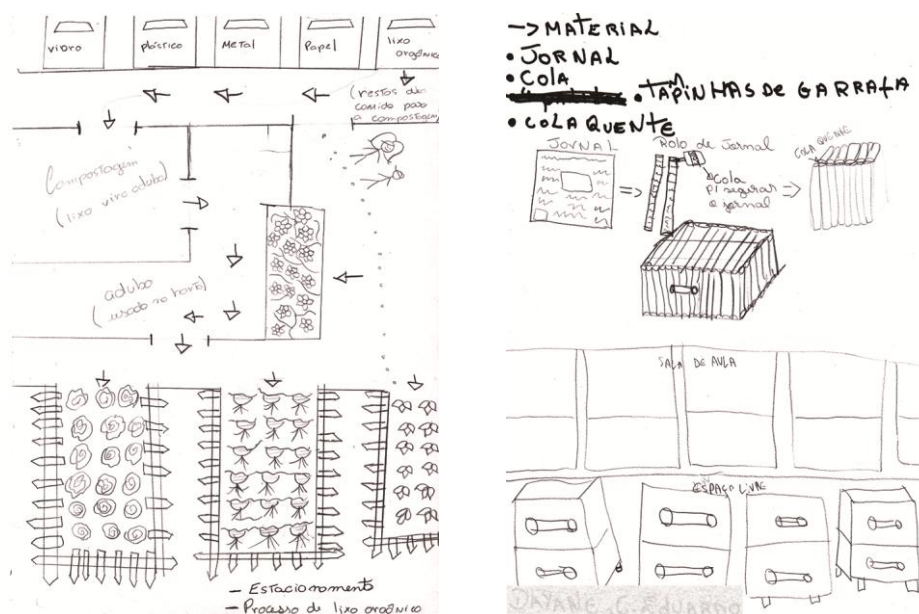 vidro
plástico
Metal
Papel
lixo
orgânico
(restos de
comida para
a compostagem
Compostagem
(lixo vira adubo)
adubo
(usado na horta)
- Estacionamento
- Processo do lixo orgânico
-> MATERIAL
• JORNAL
• COLA
• TAMPINHAS DE GARRAFA
• COLA QUENTE
JORNAL
Rolo de Jornal
COLA QUENTE
Cola
p/ segurar
o jornal
SALA DE AULA
ESPAÇO LIVRE
DAYANE, C. EDUARDO